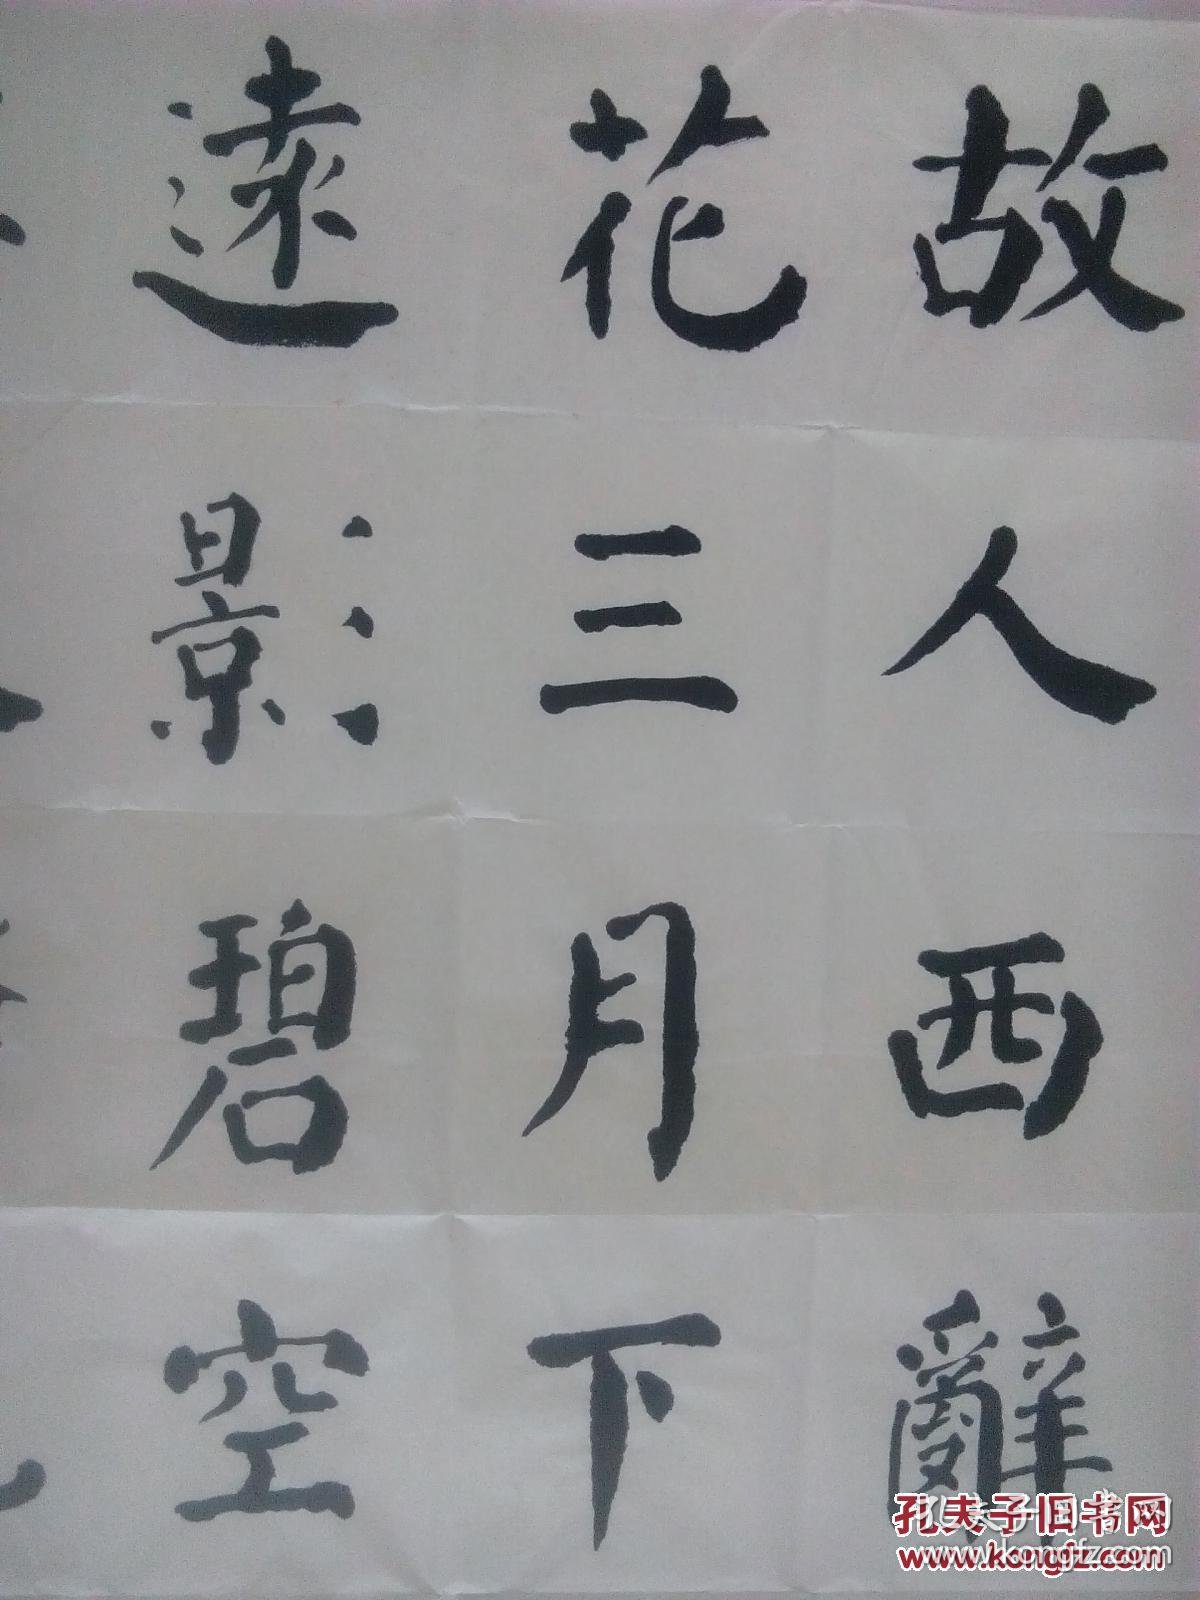 故人西辭
花三月下
遠影碧空
孔夫子旧书网
www.kongfz.com